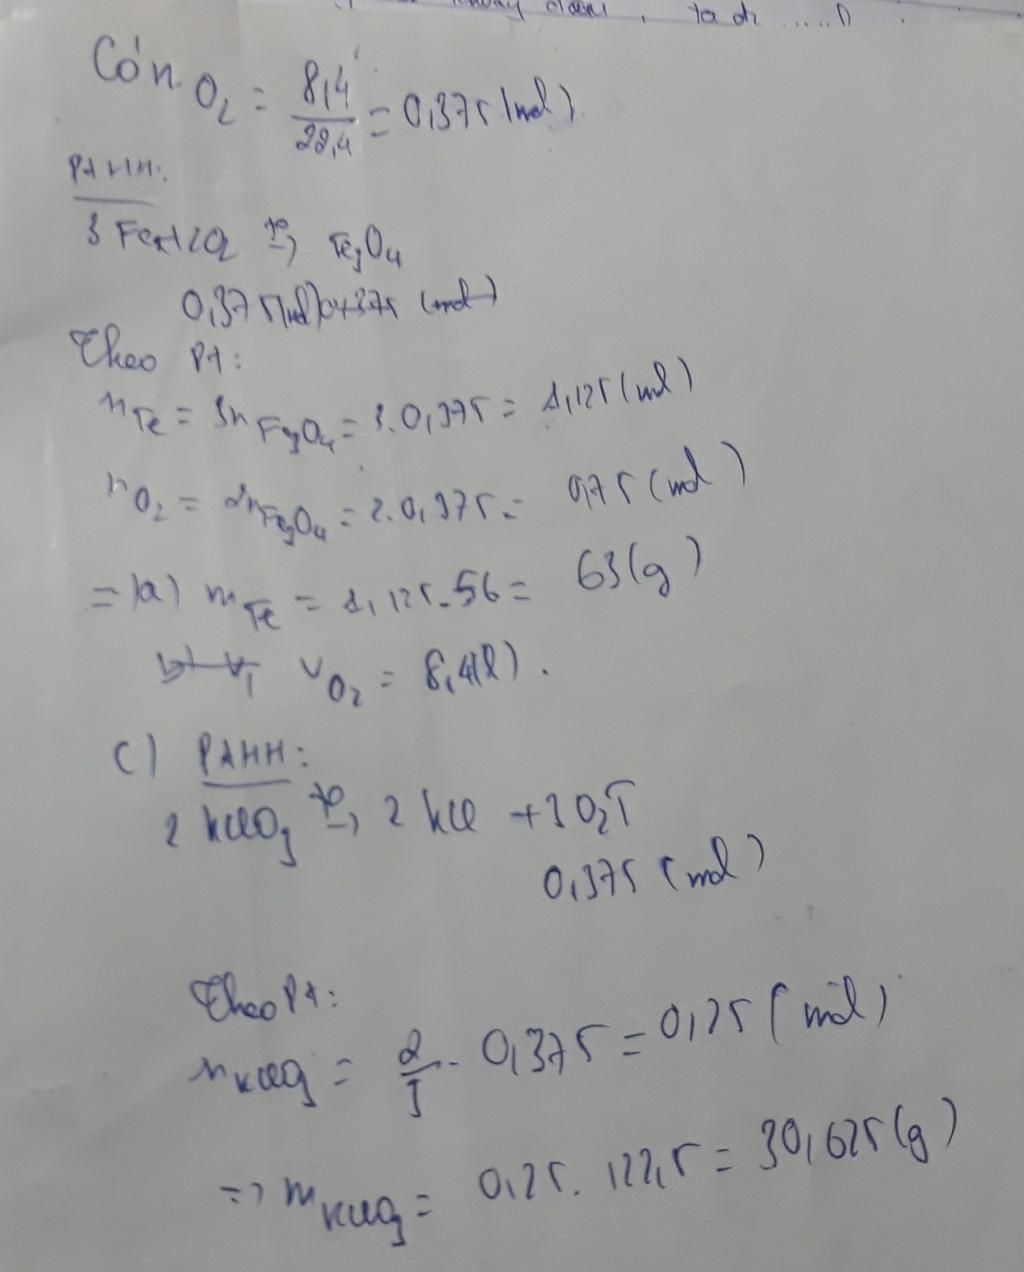 ta di .....
Có n O₂ = 8,4 / 22,4 = 0,375 (mol)
PTHH:
3 Fe + 2O₂ t⁰→ Fe₃O₄
0,375 (mol) (mol)
Theo PT:
n Fe = 3n Fe₃O₄ = 3.0,375 = 1,125 (mol)
n O₂ = 2n Fe₃O₄ = 2.0,375 = 0,75 (mol)
=> a) m Fe = 1,125.56 = 63 (g)
V O₂ = 8,4 (l).
c) PTHH:
2 KClO₃ t⁰→ 2 KCl + 3 O₂↑
0,375 (mol)
Theo PT:
n KClO₃ = 2/3 . 0,375 = 0,25 (mol)
=> m KClO₃ = 0,25. 122,5 = 30,625 (g)